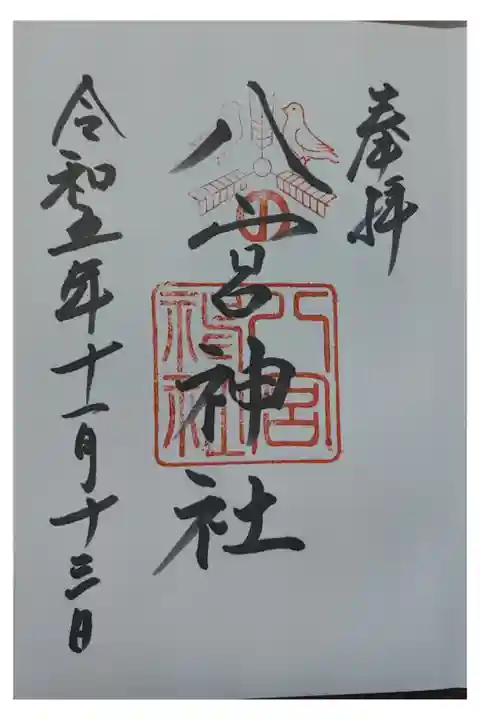 奉拝
八宮神社
八宮
神社
令和五年十一月十三日